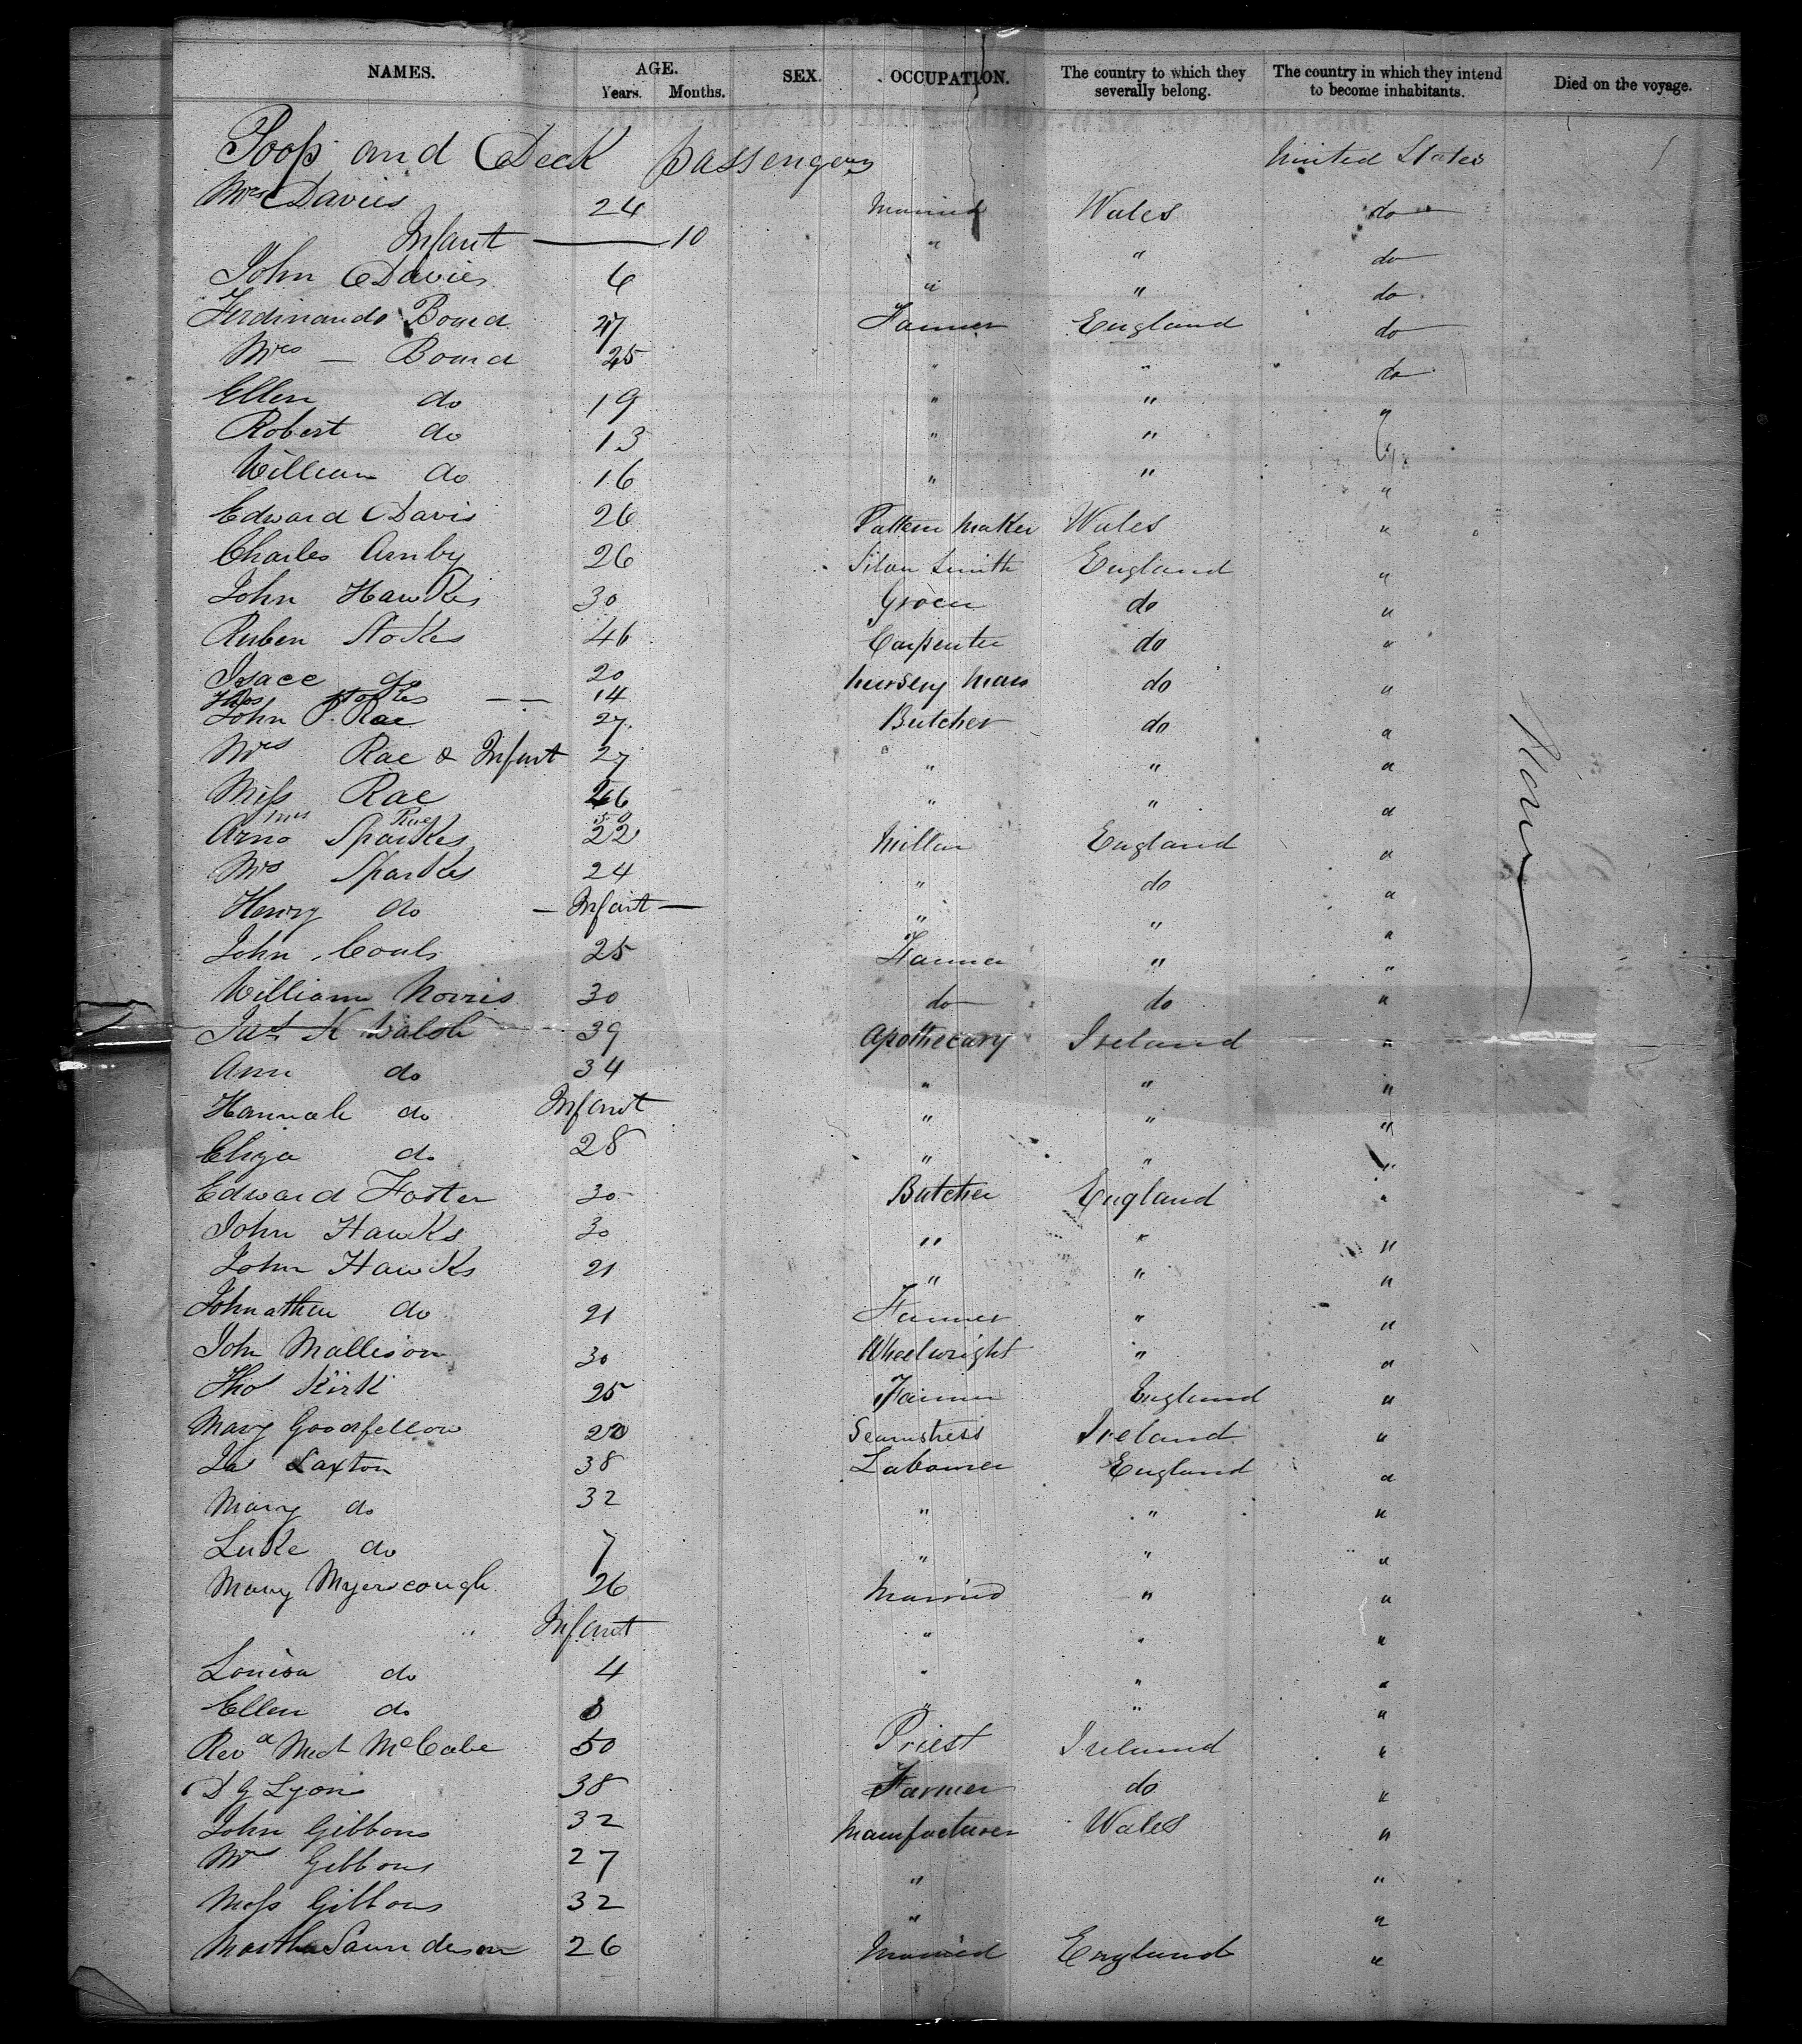 NAMES. AGE. Years. Months. SEX. OCCUPATION. The country to which they severally belong. The country in which they intend to become inhabitants. Died on the voyage.
Poop and Deck passengers United States
Mrs Davies 24 Married Wales do
Infant 10 " " do
John Davies 6 " " do
Ferdinando Board 27 Farmer England do
Mrs — Board 25 " " do
Ellen do 19 " " "
Robert do 13 " "
William do 16 " " "
Edward Davis 26 Pattern Maker Wales "
Charles Arnby 26 Silver Smith England "
John Hawkes 30 Grocer do "
Ruben Stokes 46 Carpenter do "
Isace do 20 Nursery Man do "
Thos Stokes — — 14
John P. Rae 27 Butcher do "
Mrs Rae & Infant 27 " " "
Miss Rae 26 " " "
Mrs Rae 50
Arno Sparkes 22 Miller England "
Mrs Sparkes 24 " do "
Henry do — Infant — " " "
John Couls 25 Farmer " "
William Norris 30 do do "
Jas K Walsh 39 Apothecary Ireland "
Ann do 34 " " "
Hannah do Infant " " "
Eliza do 28 " " "
Edward Foster 30 Butcher England "
John Hawks 30 " " "
John Hawks 21 " " "
Johnathen do 21 Farmer " "
John Mallison 30 Wheelwright " "
Tho Kirk 25 Farmer England "
Mary Goodfellow 20 Seamstress Ireland "
Ja Laxton 38 Labourer England "
Mary do 32 " " "
Luke do 7 " " "
Mary Myerscough 26 Married " "
" Infant " " "
Louisa do 4 " " "
Ellen do 8 " " "
Revd Mich McCabe 50 Priest Ireland "
D G Lyons 38 Farmer do "
John Gibbons 32 Manufacturer Wales "
Mrs Gibbons 27 " "
Miss Gibbons 32 " "
Martha Saunderson 26 Married England "
None